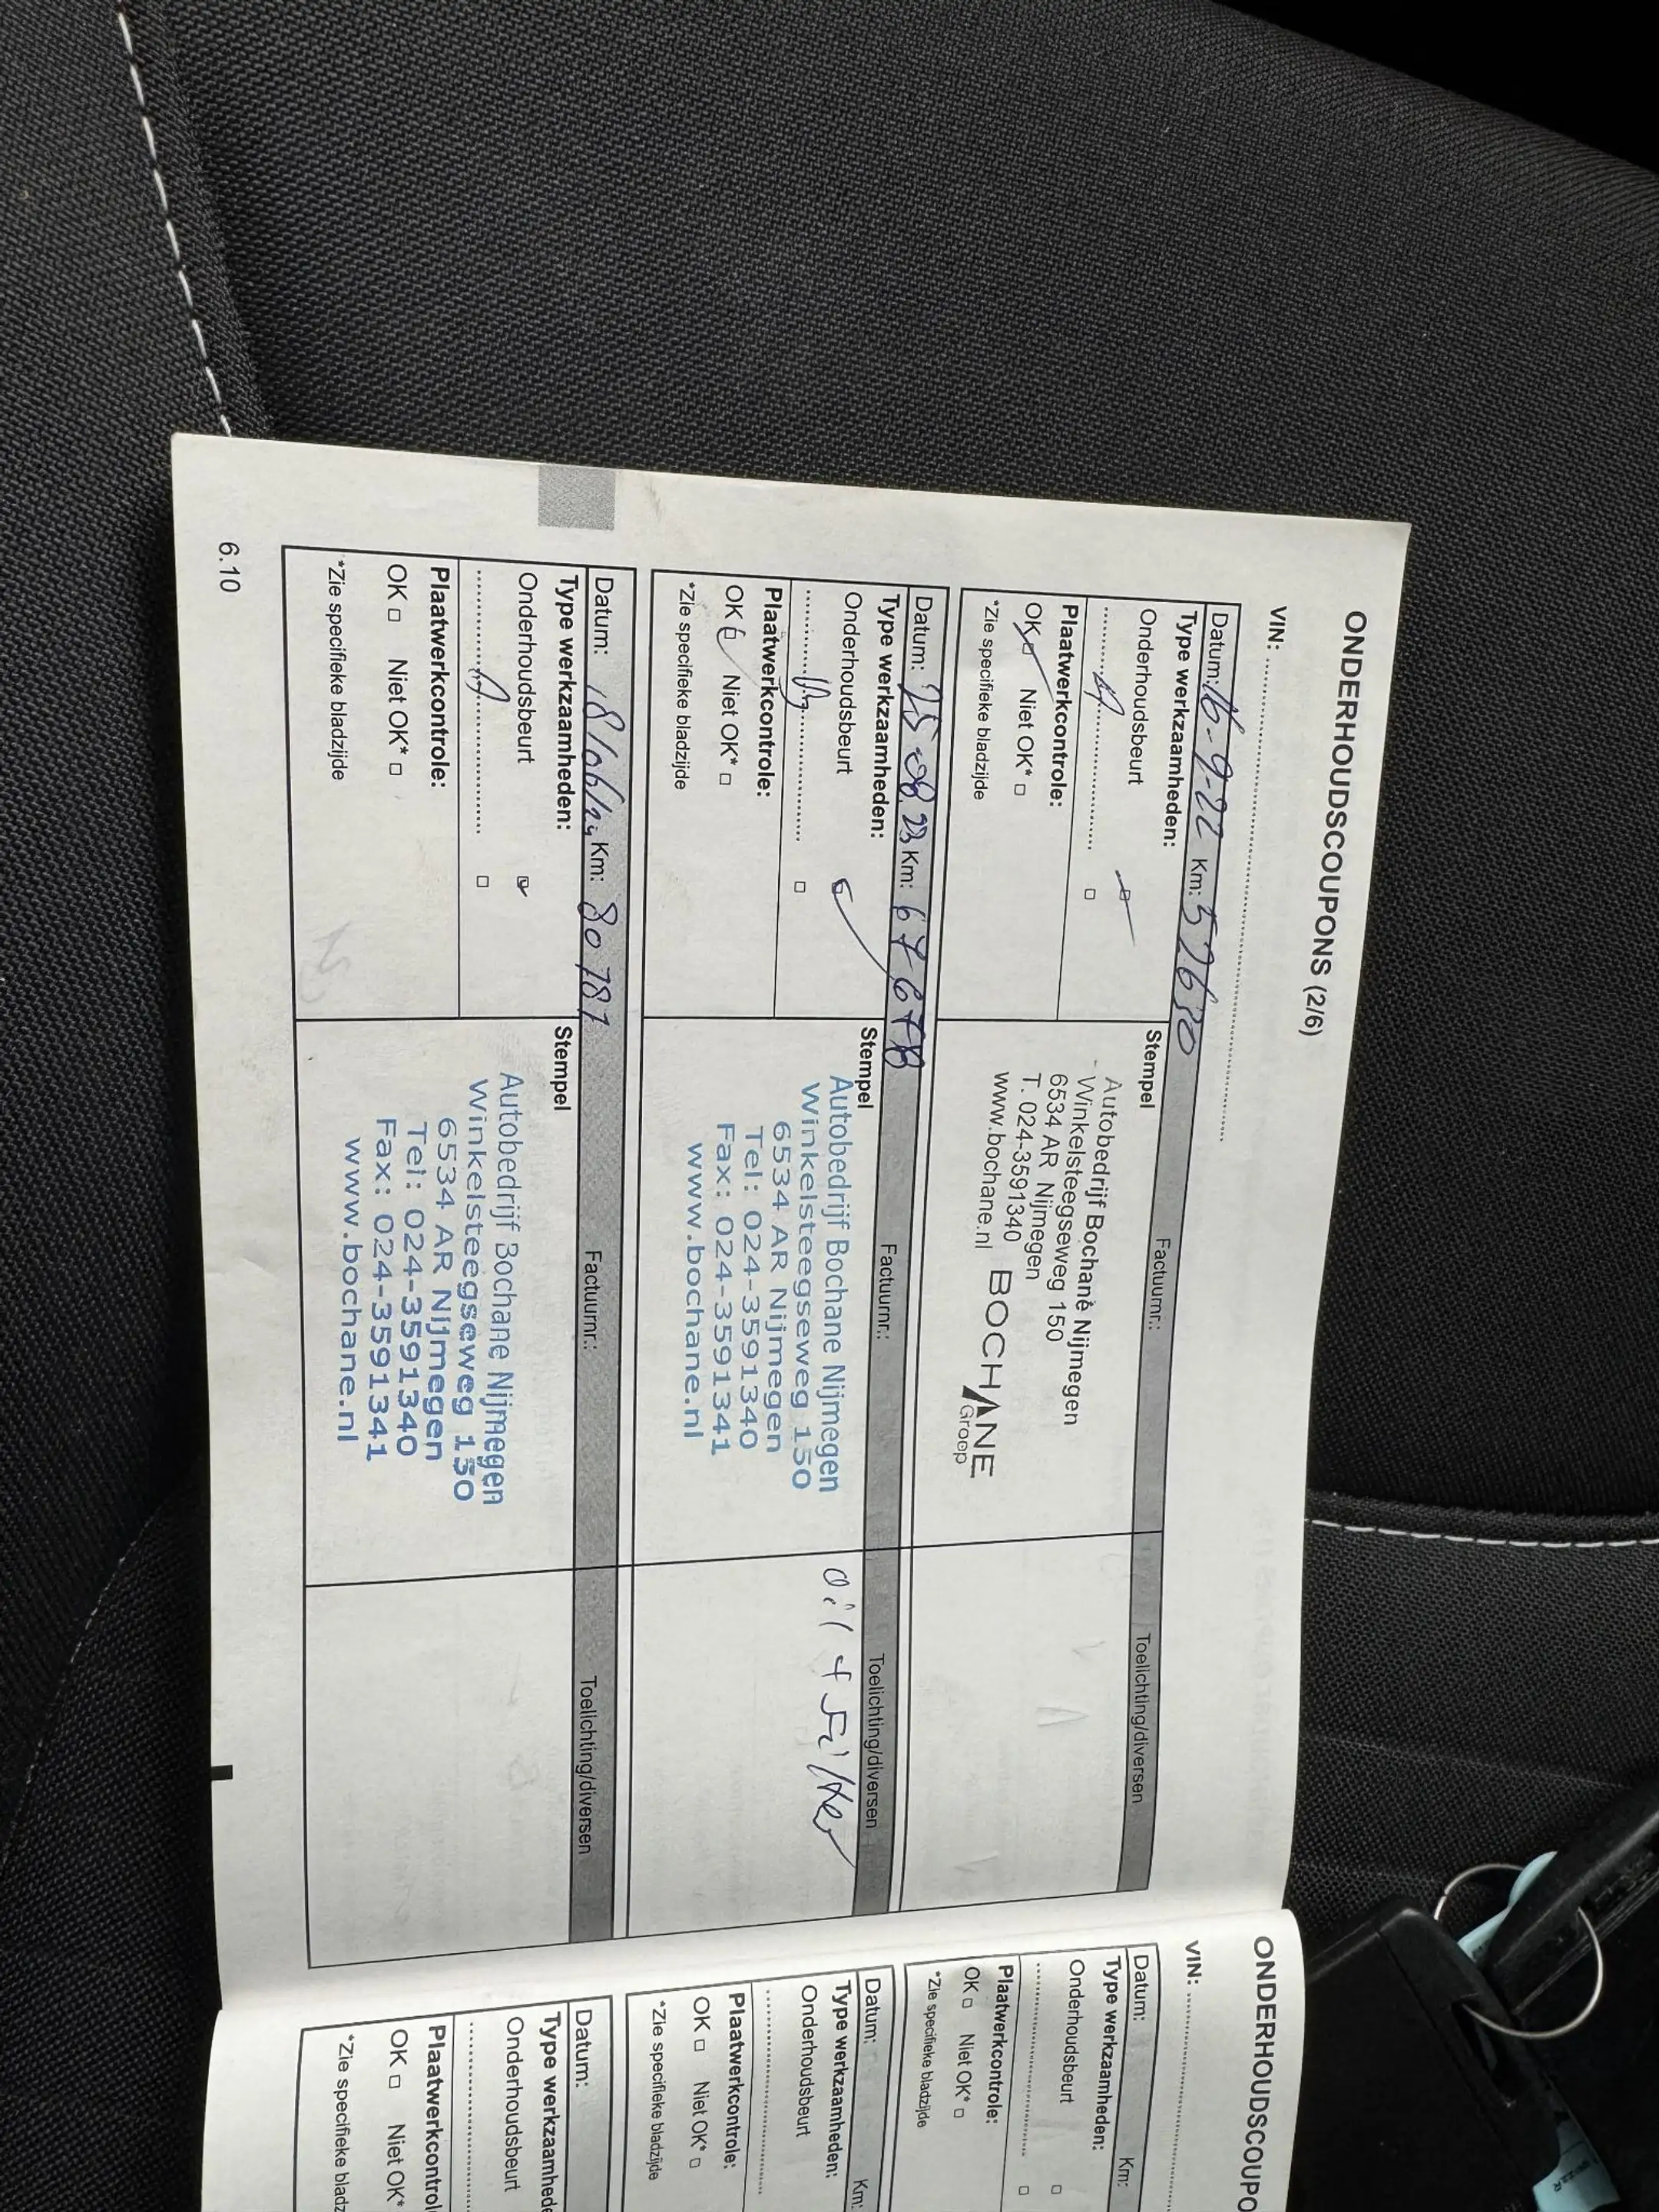 ONDERHOUDSCOUPONS (2/6)
VIN:
Datum: 16-9-22 Km: 57680 Factuurnr.: Toelichting/diversen
Type werkzaamheden:
Onderhoudsbeurt
Plaatwerkcontrole:
OK Niet OK*
*Zie specifieke bladzijde
Stempel
Autobedrijf Bochane Nijmegen
Winkelsteegseweg 150
6534 AR Nijmegen
T. 024-3591340
www.bochane.nl
BOCHANE
Groep
Datum: 25-08 23 Km: 67678 Factuurnr.: Toelichting/diversen
Type werkzaamheden:
Onderhoudsbeurt
Plaatwerkcontrole:
OK Niet OK*
*Zie specifieke bladzijde
Stempel
Autobedrijf Bochane Nijmegen
Winkelsteegseweg 150
6534 AR Nijmegen
Tel: 024-3591340
Fax: 024-3591341
www.bochane.nl
oil + Filter
Datum: 18/06/24 Km: 80787 Factuurnr.: Toelichting/diversen
Type werkzaamheden:
Onderhoudsbeurt
Plaatwerkcontrole:
OK Niet OK*
*Zie specifieke bladzijde
Stempel
Autobedrijf Bochane Nijmegen
Winkelsteegseweg 150
6534 AR Nijmegen
Tel: 024-3591340
Fax: 024-3591341
www.bochane.nl
6.10
ONDERHOUDSCOUPO
VIN:
Datum: Km:
Type werkzaamheden:
Onderhoudsbeurt
Plaatwerkcontrole:
OK Niet OK*
*Zie specifieke bladzijde
Datum: Km:
Type werkzaamheden:
Onderhoudsbeurt
Plaatwerkcontrole:
OK Niet OK*
*Zie specifieke bladzijde
Datum:
Type werkzaamhede
Onderhoudsbeurt
Plaatwerkcontrol
OK Niet OK*
*Zie specifieke bladz